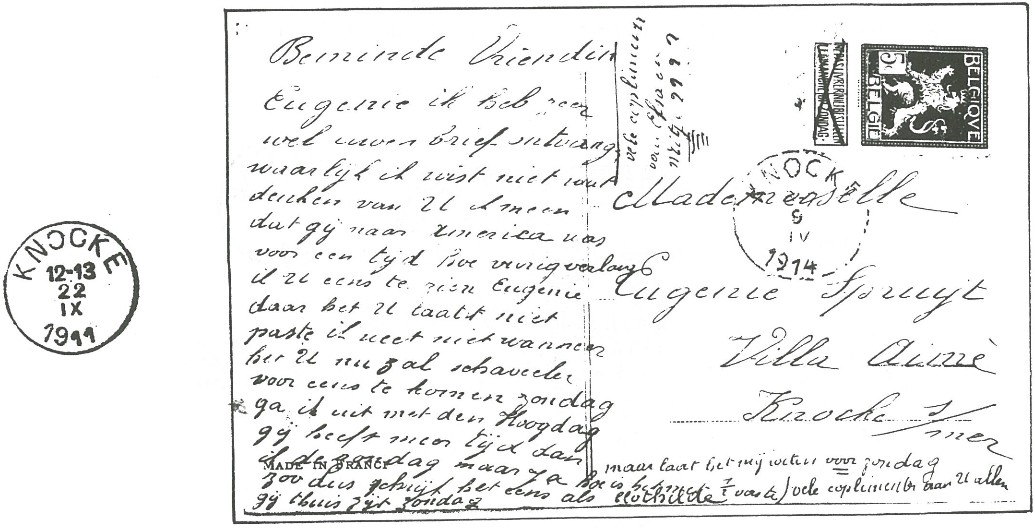 KNOCKE
12-13
22
IX
1911
Beminde Vriendin
Eugenie ik heb zeer
wel uwen brief ontvang
waarlijk ik wist niet wat
denken van U ik meen
dat gij naar America was
voor een tijd hoe vurig verlang
ik U eens te zien Eugenie
daar het U laatst niet
paste ik weet niet wanneer
het U nu zal schaveelen
voor eens te komen zondag
ga ik uit met den Hoogdag
gij heeft meer tijd dan
de zondag maar
zoo dus schrijf het eens als
gij thuis zijt zondag
MADE IN FRANCE
vele complimen
van
BELGIQUE
BELGIË
5c
KNOCKE
9
IV
1914
Mademoiselle
Eugenie Spruyt
Villa Aimé
Knocke s/mer
maar laat het mij weten voor zondag
Clothilde vaste) vele complimenten aan U allen